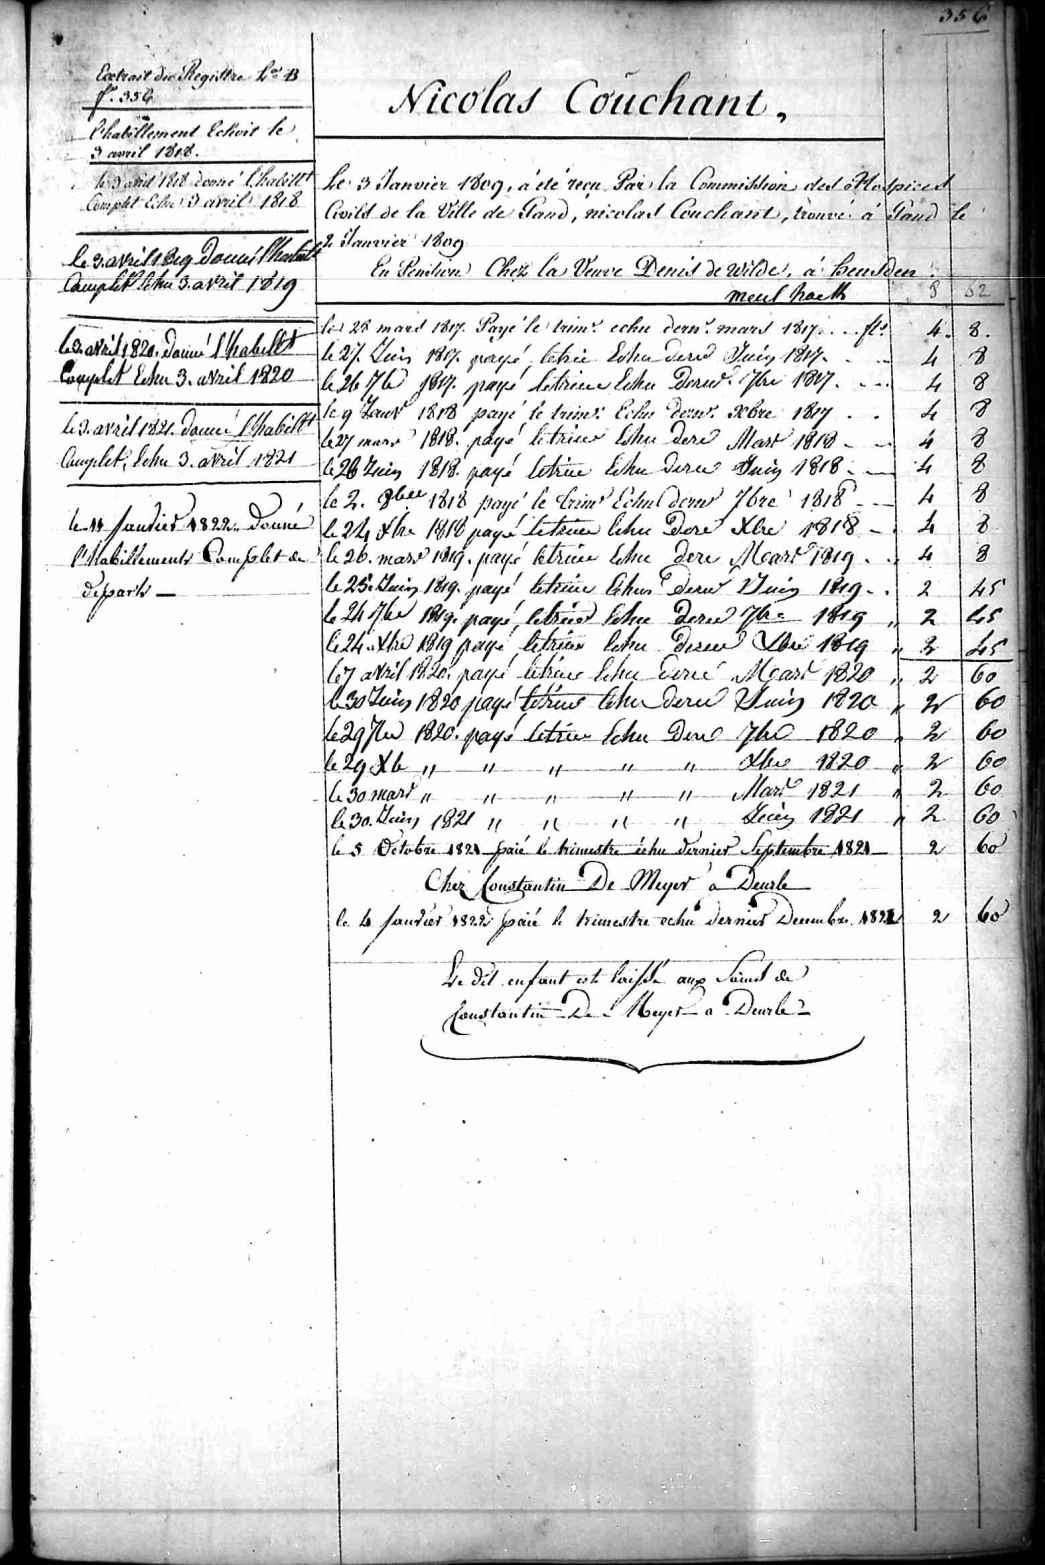 356
Extrait du Registre L.ª B
f.º 356
l'habillement Echoit le
3 avril 1818.
le 3 avril 1818 donné l'habillt
Complet Echu 3 avril 1818
le 3. avril 1819 Donné l'habillt
Complet Echu 3. avril 1819
le 3. avril 1820. donné l'habillt
Complet Echu 3. avril 1820
le 3. avril 1821. donné l'habillt
Complet, Echu 3. avril 1821
le 11 Janvier 1822. Donné
l'habillement Complet de
départ —
Nicolas Couchant,
Le 3 Janvier 1809, a été reçu Par la Commission des Hospices
Civils de la Ville de Gand, nicolas Couchant, trouvé à Gand le
2 Janvier 1809
En Pension Chez la Veuve Denis de Wilde, á heusden
8 62
le 28 mars 1817. Payé le trimr. echu dernr. mars 1817. . . fls. 4. 8.
le 27. Juin 1817. payé letrie Echu derne Juin 1817. - - 4 8
le 26 7bre 1817. payé letrime Echu Dernr. 7bre 1817. - - - 4 8
le 9 Janvr 1818 payé le trimr. Echu dernr. Xbre 1817 . . 4 8
le 27 mars 1818. payé letrime Echu dere Mars 1818 - - 4 8
le 26 Juin 1818. payé letrime Echu derne Juin 1818. — 4 8
le 2. 8bre 1818 payé le trimr Echu dernr 7bre 1818 - — 4 8
le 24 Xbre 1818 payé letrime Echu Dere Xbre 1818 - . 4 8
le 26. mars 1819. payé letrime Echu dere Mars 1819 . . 4 8
le 25. Juin 1819. payé letrime Echu derne Juin 1819 - . 2 45
le 24 7bre 1819. payé letrime Echu derne 7bre 1819 " 2 45
le 24. Xbre 1819 payé letrime Echu derne Xbre 1819 " 2 45
le 7 avril 1820. payé letrime Echu derne Mars 1820 " 2 60
le 30 Juin 1820 payé letrime Echu derne Juin 1820 " 2 60
le 29 7bre 1820. payé letrime Echu Dere 7bre 1820 " 2 60
le 29 Xb " " " " " Xbre 1820 " 2 60
le 30 mars " " " " " Mars 1821 " 2 60
le 30. Juin 1821 " " " " Juin 1821 " 2 60
le 5 Octobre 1821 paié le trimestre échu dernier Septembre 1821 — 2 60
Chez Constantin De Meyer a Deurle
le 4 Janvier 1822 paié le trimestre echu dernier Decembre 1821 2 60
Le dit enfant est laissé aux Soins de
Constantin De Meyer a Deurle